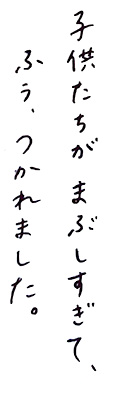 子供たちが まぶしすぎて、
ふう、つかれました。